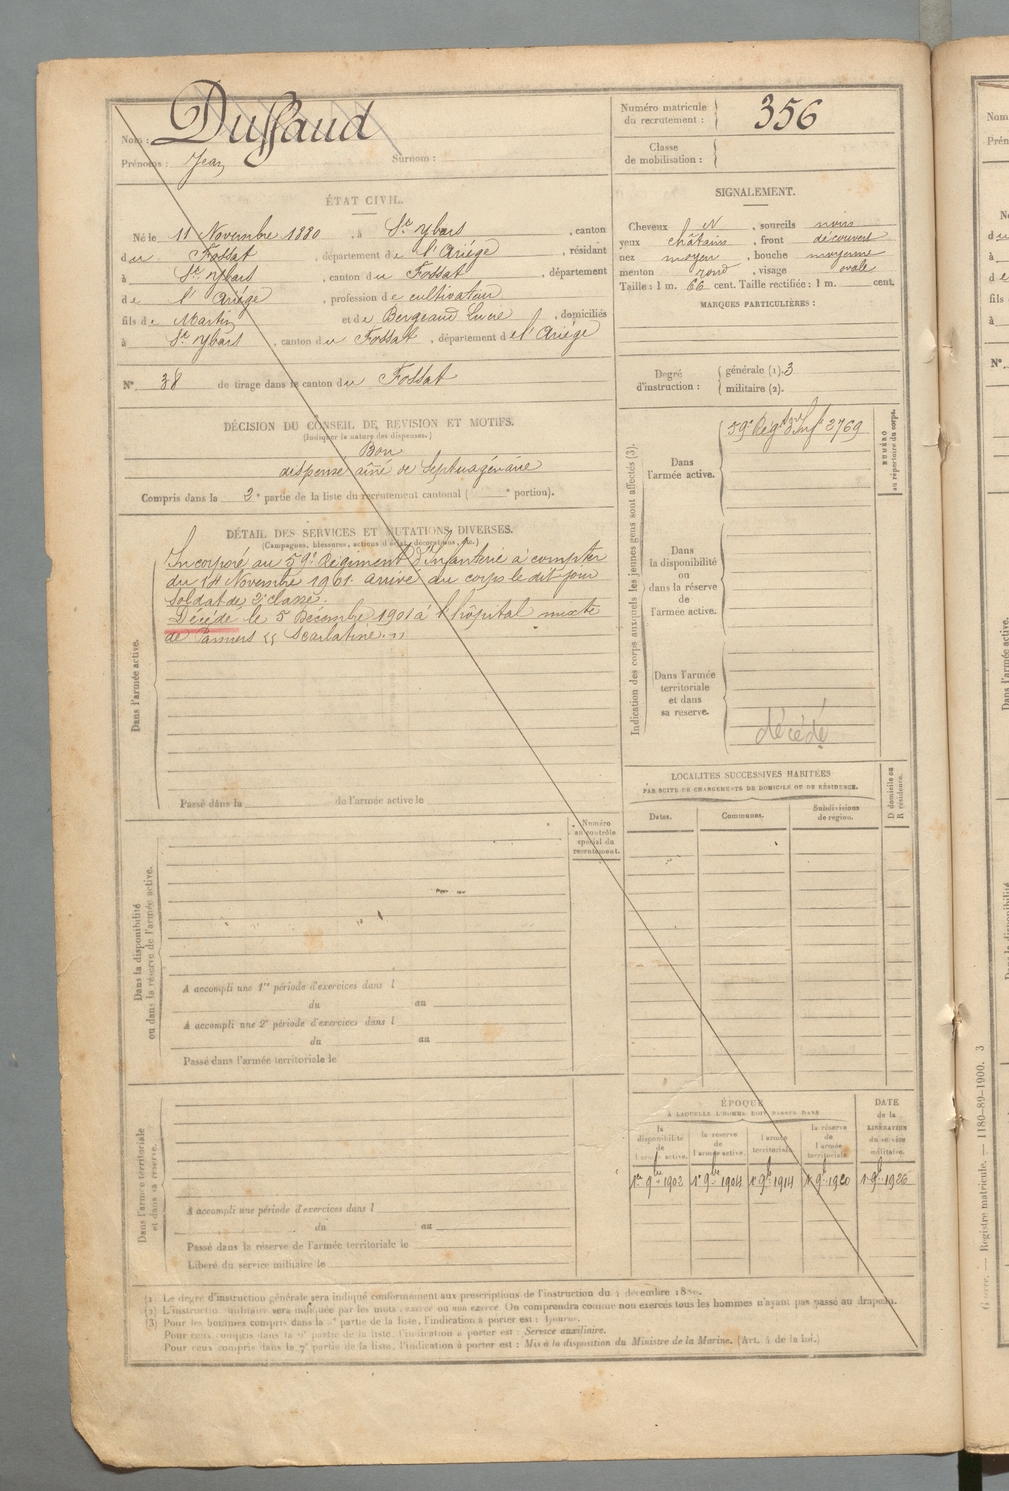 Nom : Dussaud
Prénoms : Jean Surnom :
Numéro matricule du recrutement : 356
Classe de mobilisation :
ÉTAT CIVIL.
Né le 11 Novembre 1880, à St Ybars, canton
du Fossat, département de l'Ariége, résidant
à St Ybars, canton du Fossat, département
de l'Ariége, profession de cultivateur
fils de Martin et de Bergeaud, domiciliés
à St Ybars, canton du Fossat, département de l'Ariége
N° 38 de tirage dans le canton du Fossat
SIGNALEMENT.
Cheveux N, sourcils noirs
yeux châtains, front découvert
nez moyen, bouche moyenne
menton rond, visage ovale
Taille : 1 m. 66 cent. Taille rectifiée : 1 m. cent.
MARQUES PARTICULIÈRES :
Degré d'instruction : générale (1). 3
militaire (2).
DÉCISION DU CONSEIL DE REVISION ET MOTIFS.
(Indiquer la nature des dispenses.)
Bon
dispense aîné de Septuagénaire
Compris dans la 2e partie de la liste du recrutement cantonal ( e portion).
DÉTAIL DES SERVICES ET MUTATIONS DIVERSES.
(Campagnes, blessures, actions d'éclat, décorations, etc.)
Dans l'armée active.
Incorporé au 59e Régiment d'Infanterie à compter
du 14 Novembre 1901. arrivé au corps le dit jour
Soldat de 2e classe.
Décédé le 5 Décembre 1901 à l'hôpital mixte
de Pamiers "Scarlatine."
Passé dans la de l'armée active le
Indication des corps auxquels les jeunes gens sont affectés (3).
NUMÉRO au répertoire du corps.
Dans l'armée active. 59e Regt d'Infie 2769
Dans la disponibilité ou dans la réserve de l'armée active.
Dans l'armée territoriale et dans sa réserve.
décédé
LOCALITÉS SUCCESSIVES HABITÉES
PAR SUITE DE CHANGEMENTS DE DOMICILE OU DE RÉSIDENCE.
D domicile ou R résidence.
Dates. Communes. Subdivisions de région.
Dans la disponibilité ou dans la réserve de l'armée active.
Numéro au contrôle spécial du recrutement.
A accompli une 1re période d'exercices dans l
du au
A accompli une 2e période d'exercices dans l
du au
Passé dans l'armée territoriale le
Dans l'armée territoriale et dans sa réserve.
A accompli une période d'exercices dans l
du au
Passé dans la réserve de l'armée territoriale le
Libéré du service militaire le
ÉPOQUE
À LAQUELLE L'HOMME DOIT PASSER DANS
DATE de la LIBÉRATION du service militaire.
la disponibilité de l'armée active. la réserve de l'armée active. l'armée territoriale. la réserve de l'armée territoriale.
1er 9bre 1902 1er 9bre 1904 1er 9bre 1914 1er 9bre 1920 1er 9bre 1926
(1) Le degré d'instruction générale sera indiqué conformément aux prescriptions de l'instruction du 4 décembre 1889.
(2) L'instruction militaire sera indiquée par les mots : exercé ou non exercé. On comprendra comme non exercés tous les hommes n'ayant pas passé au drapeau.
(3) Pour les hommes compris dans la partie de la liste, l'indication à porter est : Ajourné.
Pour ceux compris dans la partie de la liste, l'indication à porter est : Service auxiliaire.
Pour ceux compris dans la 7e partie de la liste, l'indication à porter est : Mis à la disposition du Ministre de la Marine. (Art. 4 de la loi.)
Registre matricule. — 1180-89-1900. 3